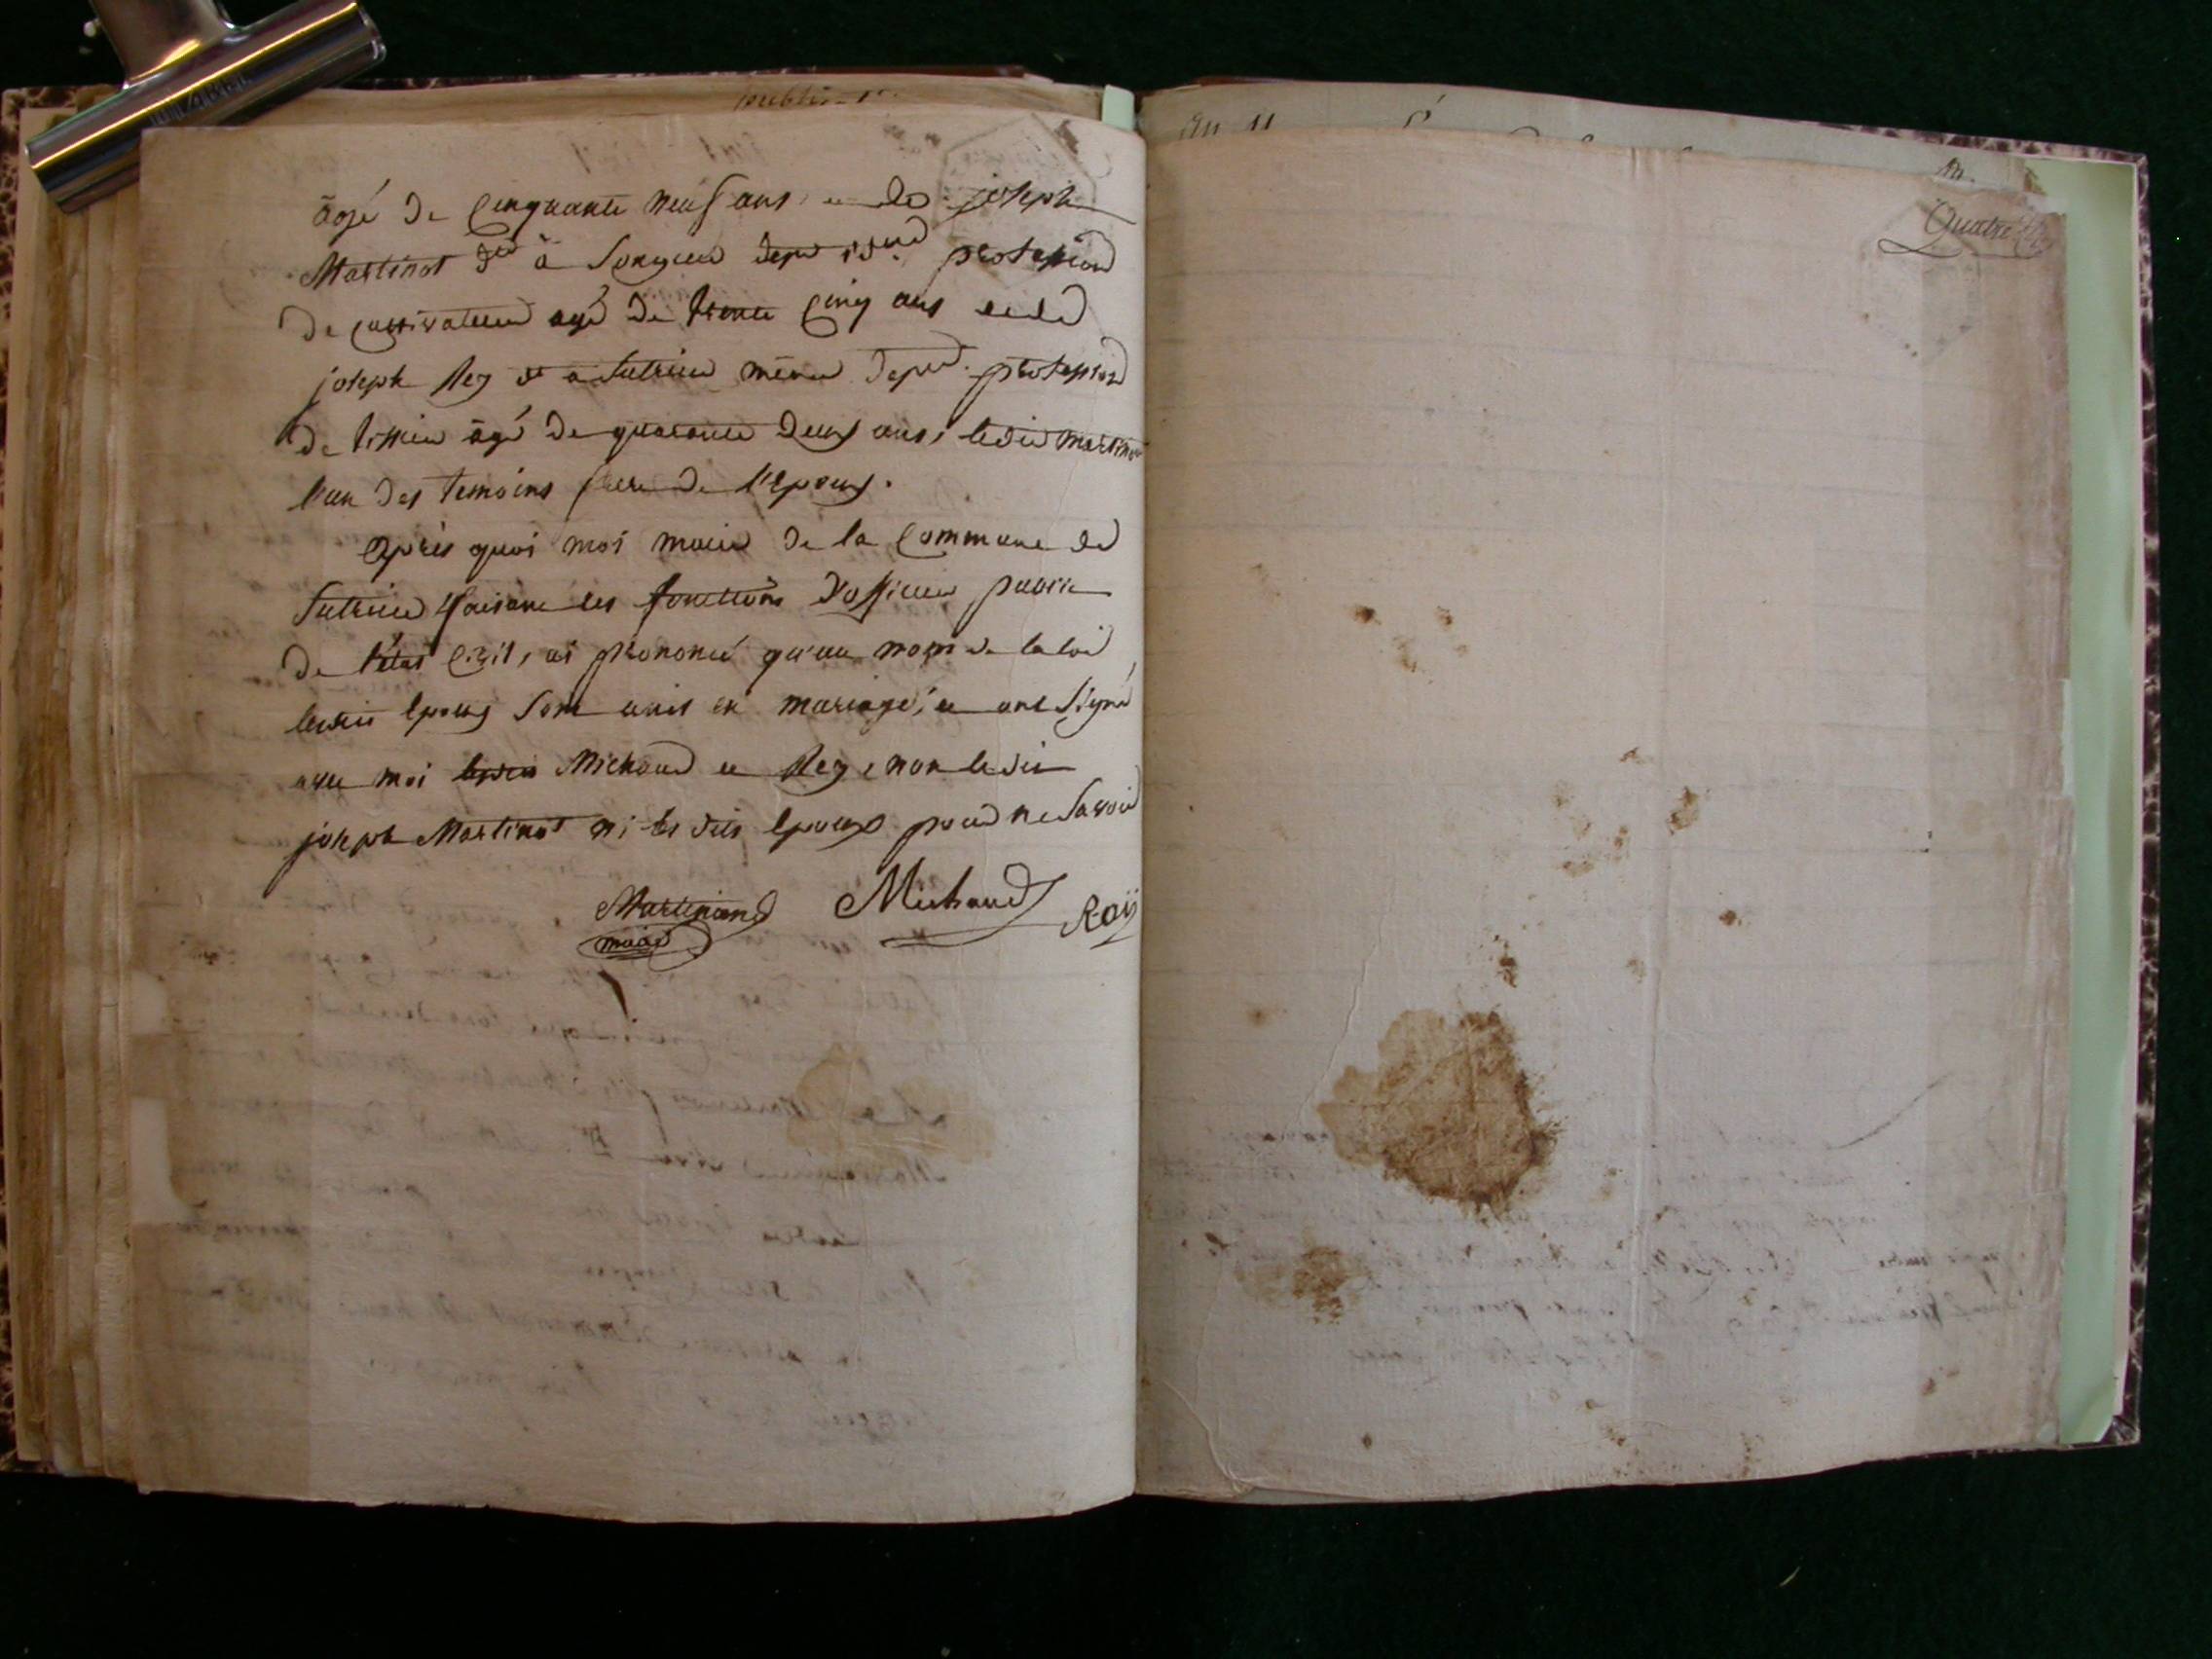 âgé de Cinquante neuf ans, et de joseph
Martinot dt à Songieu depnt profession
de cultivateur agé de trente Cinq ans et de
joseph Rey dt a Sutrieu même depnt. profession
de tissier âgé de quarante deux ans, ledit Martinot
l'un des temoins frere de l'Epoux.
Après quoi moi maire de la Commune de
Sutrieu faisant les fonctions d'officier public
de l'état Civil, ai prononcé qu'au nom de la loi
lesdits Epoux sont unis en mariage, et ont signé
avec moi lesdits Michaud et Rey, non ledit
joseph Martinot ni les dits Epoux pour ne savoir
Martinand Michaud Roÿ
maire
Quatre
an 11